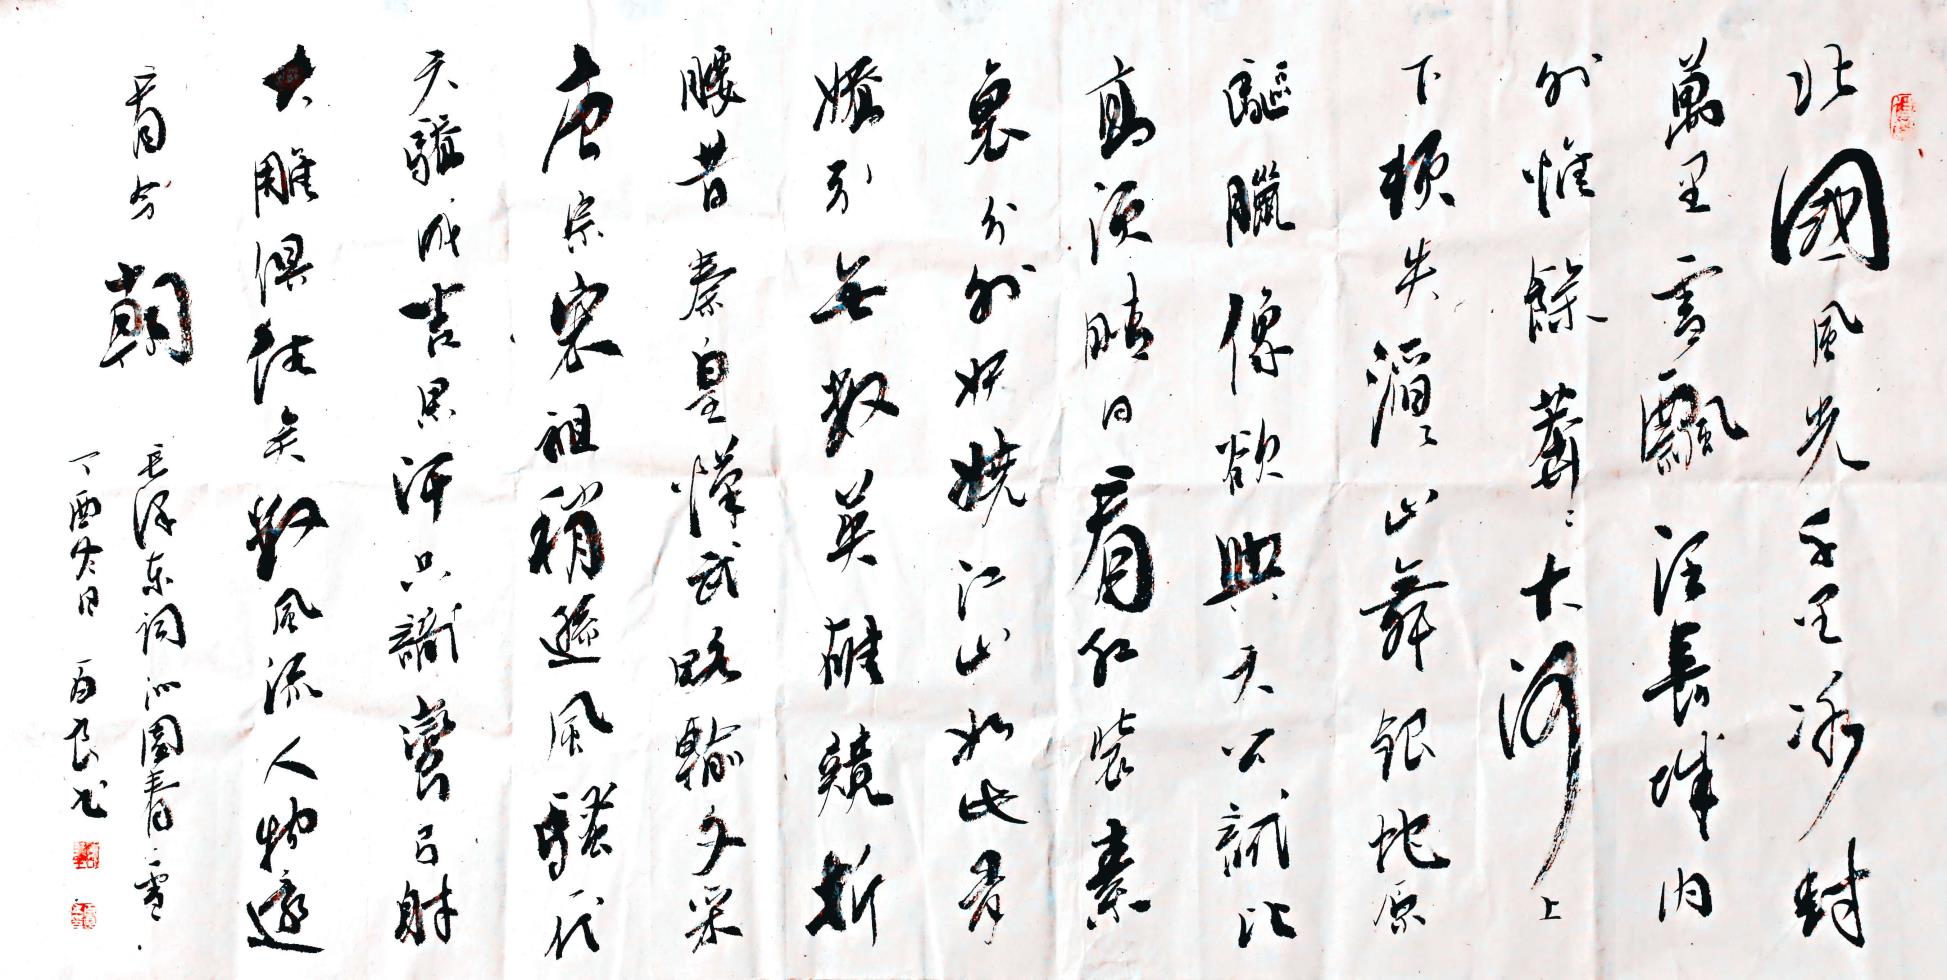 北國風光千里冰封
萬里雪飄望長城內
外惟餘莽〻大河上
下頓失滔〻山舞銀虵原
驅臘像欲與天公試比
高須晴日看紅裝素
裹分外妖嬈江山如此多
嬌引無數英雄競折
腰昔秦皇漢武略輸文采
唐宗宋祖稍遜風騷一代
天驕成吉思汗只識彎弓射
大雕俱往矣數風流人物還
看今朝
毛澤東詞沁園春雪
丁酉冬日 良书